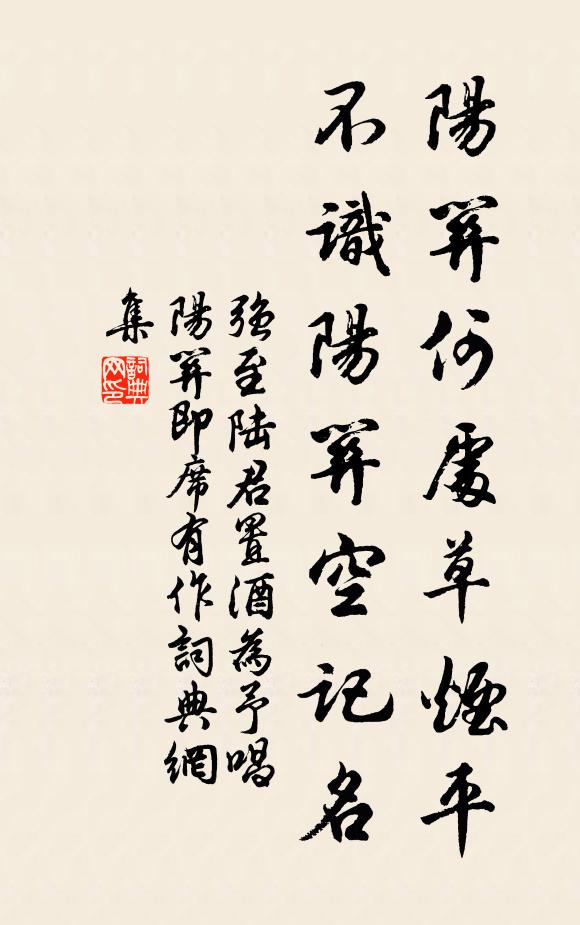 陽関何處草煙平
不識陽関空記名
強至陸君置酒為予唱
陽関即席有作詞典網
集
詞典網印